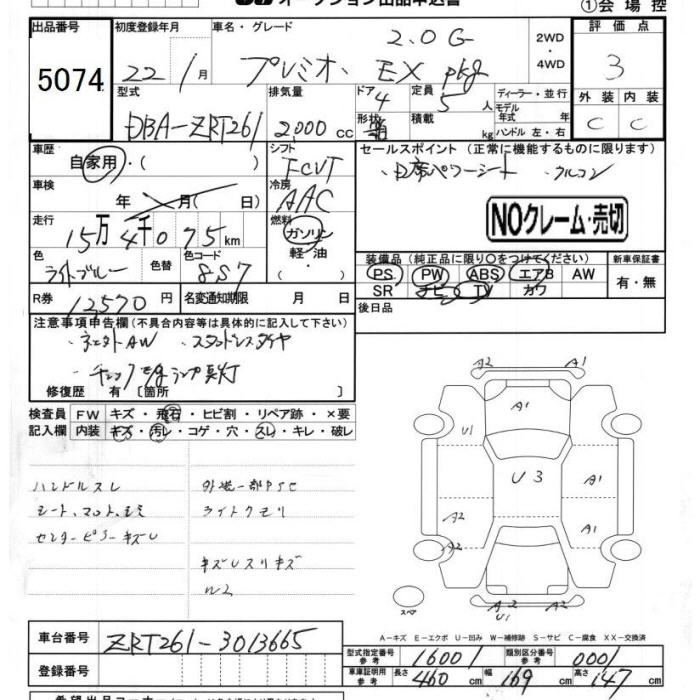 オークション出品申込書
①会場控
出品番号 初度登録年月 車名・グレード 評価点
5074 22 1月 プレミオ、EX pkg 2.0G 2WD・4WD 3
型式 排気量 ドア 4 定員 5人 ディーラー・並行 外装 内装
DBA-ZRT261 2000cc 形状 積載 kg モデル年式 年 C C
ハンドル左・右
車歴 自家用・( ) シフト FCVT
セールスポイント(正常に機能するものに限ります)
・D席パワーシート ・フルコン
車検 年 月( 日) 冷房 AAC
NOクレーム・売切
走行 15万4千075km 燃料 ガソリン・軽油・
色 ライトブルー 色替 色コード 8S7
装備品(純正品に限り○をつけてください) 新車保証書
PS PW ABS エアB AW 有・無
SR ナビ TV カワ
R券 12570円 名変通知期限 月 日
後日品
注意事項申告欄(不具合内容等は具体的に記入して下さい)
・AW ・スタッドレスタイヤ
修復歴 有[箇所 ]
検査員記入欄 FW キズ・飛石・ヒビ割・リペア跡・×要
内装 キズ・汚レ・コゲ・穴・スレ・キレ・破レ
ハンドルスレ
シート、マット、シミ
センターピラーキズU
外装一部PSC
ライトクモリ
キズUスリキズ
W2
A2 A1
A1
U1
U3
A1
A2
A1
A2
A2
U1
スペア
A-キズ E-エクボ U-凹み W-補修跡 S-サビ C-腐食 XX-交換済
車台番号 ZRT261-3013665
型式指定番号 参考 16001 類別区分番号 参考 0001
登録番号
車庫証明用 参考 長さ 460cm 幅 169cm 高さ 147cm